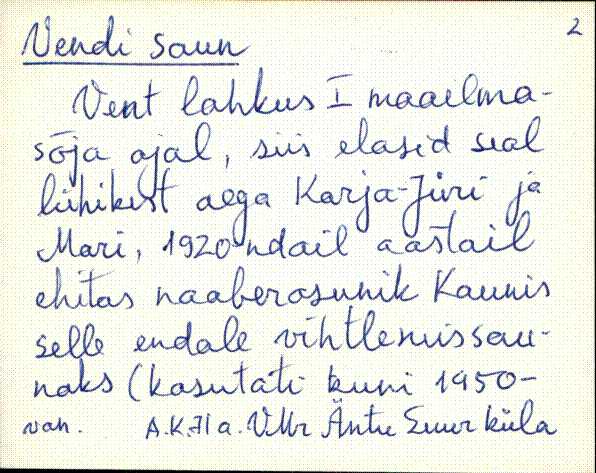 Vendi saun 2
Vent lahkus I maailma-
sõja ajal, siis elasid seal
lühikest aega Karja-Jüri ja
Mari, 1920-ndail aastail
ehitas naaberasunik Kaunis
selle endale vihtlemissau-
naks (kasutati kuni 1950-
van. A.K. 71 a. V.Mr Äntu Suurküla